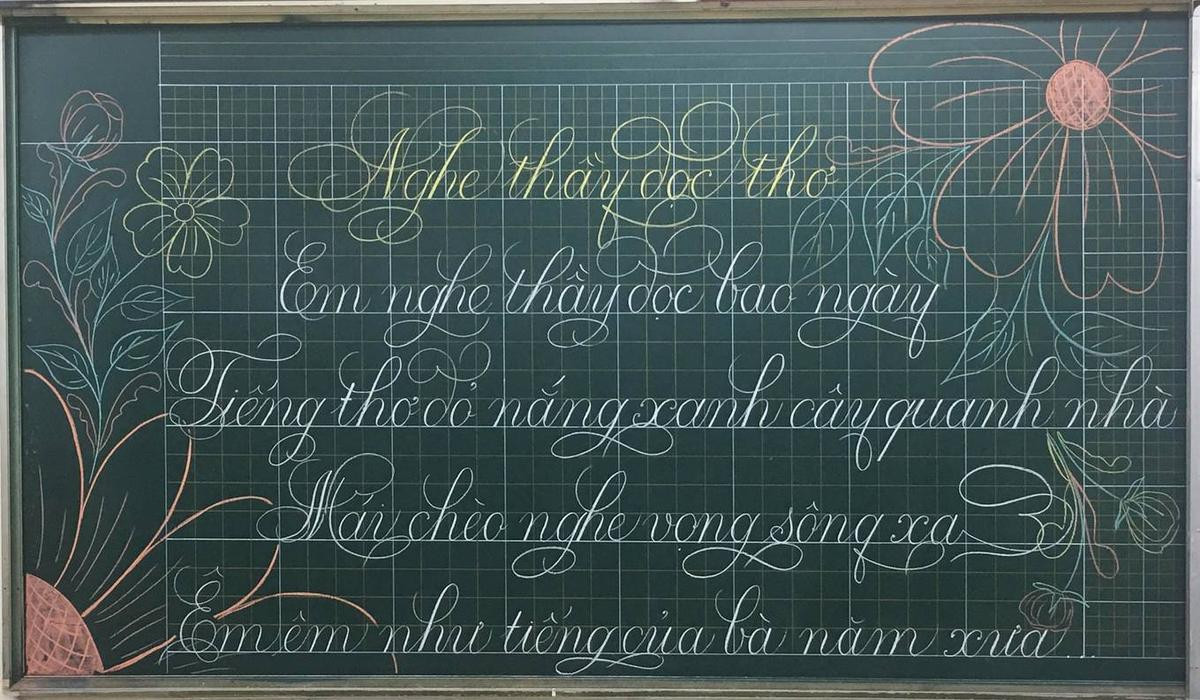 Nghe thầy đọc thơ
Em nghe thầy đọc bao ngày
Tiếng thơ đỏ nắng xanh cây quanh nhà
Mái chèo nghe vọng sông xa
Êm êm như tiếng của bà năm xưa...